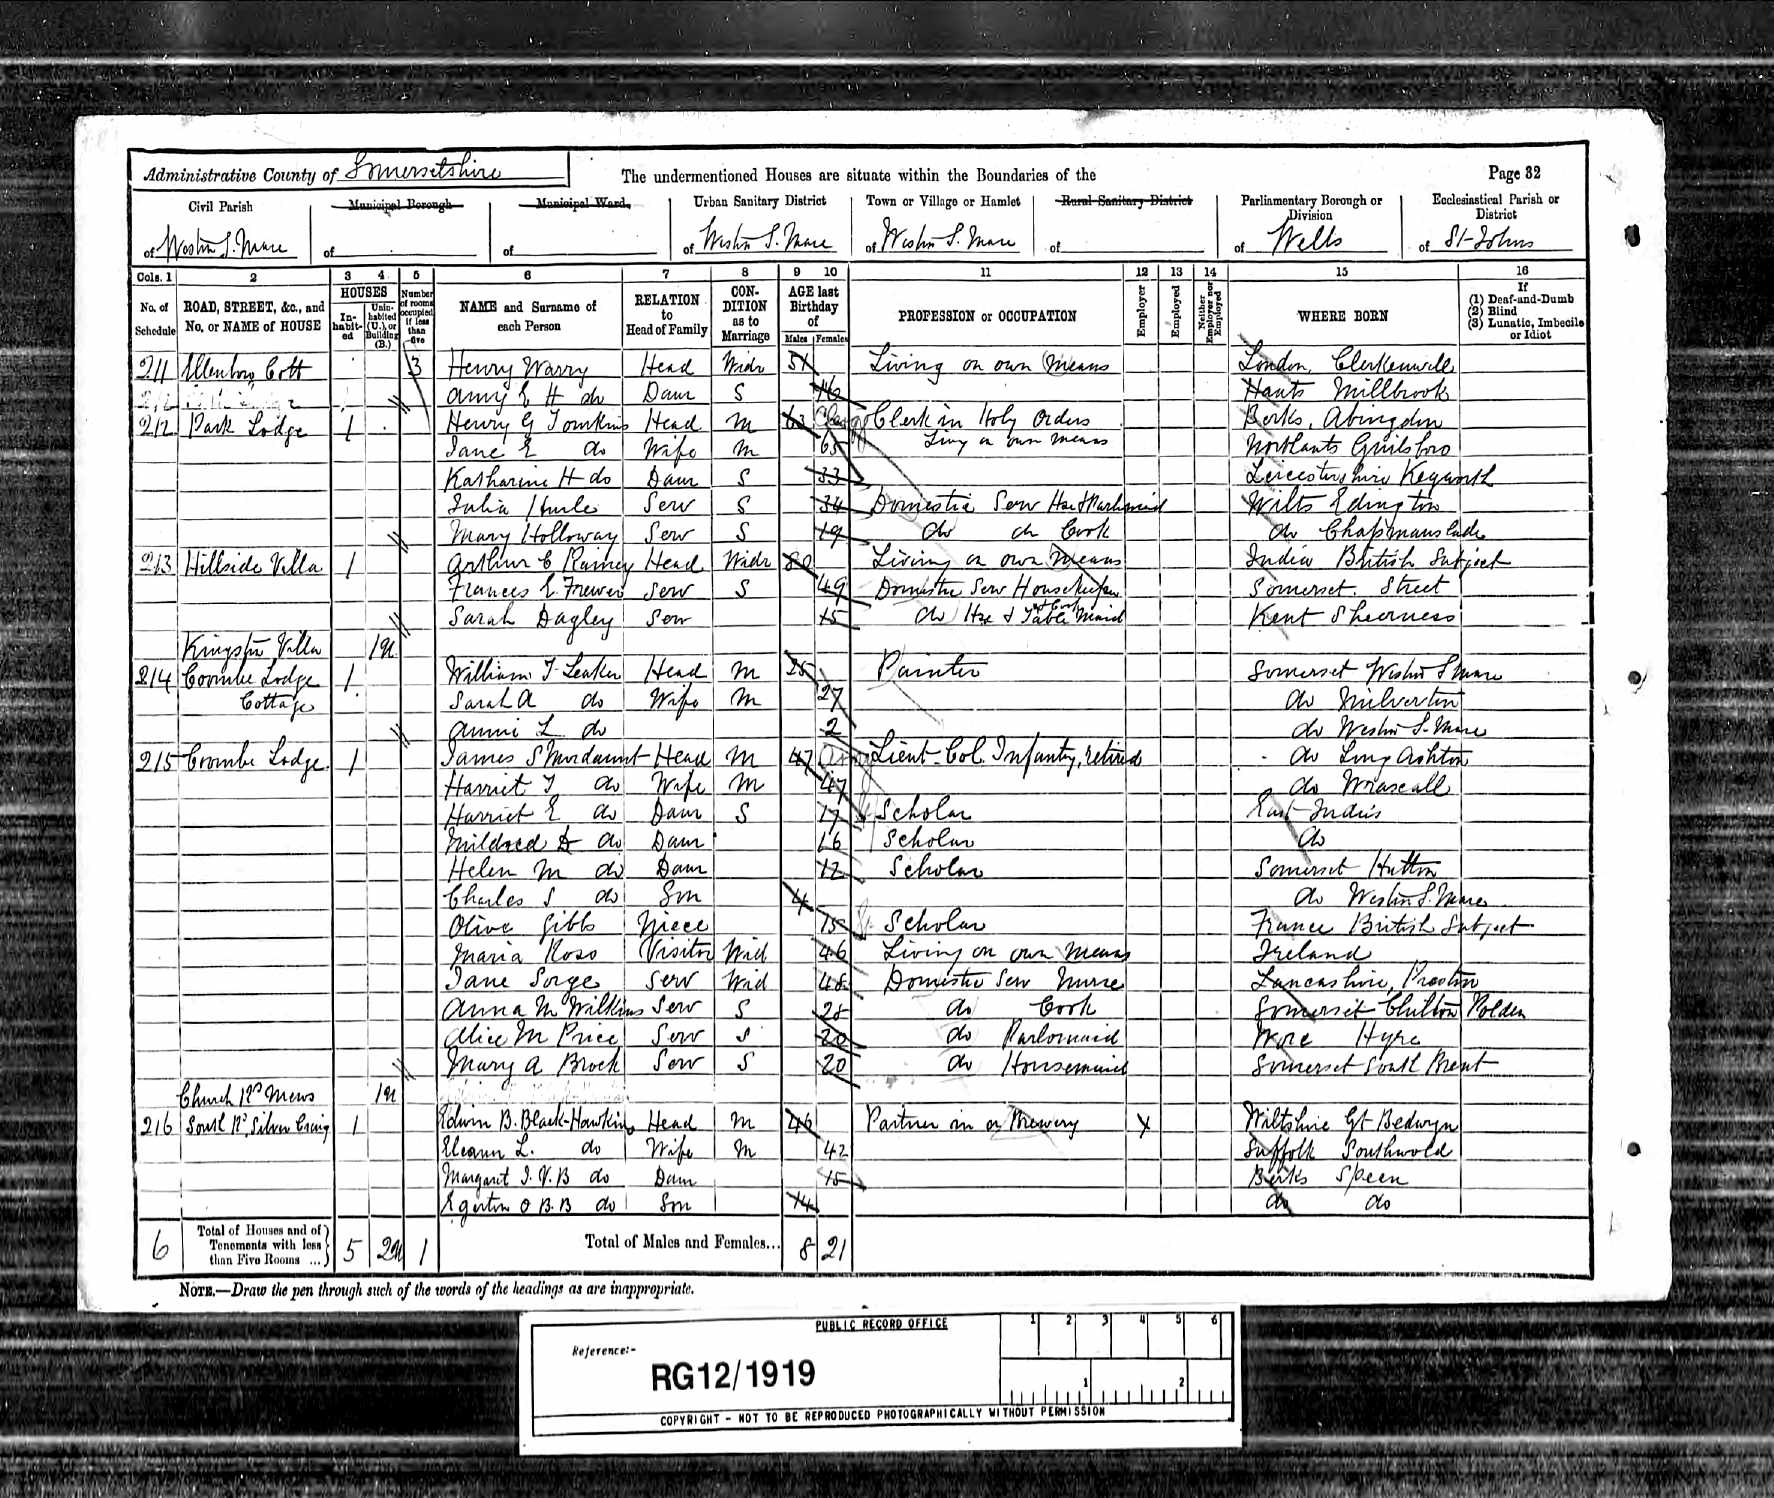 Administrative County of Somersetshire The undermentioned Houses are situate within the Boundaries of the Page 32
Civil Parish Municipal Borough Municipal Ward, Urban Sanitary District Town or Village or Hamlet Rural Sanitary District Parliamentary Borough or Division Ecclesiastical Parish or District
of Weston S. Mare of of of Weston S. Mare of Weston S. Mare of of Wells of St Johns
Cols. 1 2 3 4 5 6 7 8 9 10 11 12 13 14 15 16
No. of Schedule ROAD, STREET, &c., and No. or NAME of HOUSE HOUSES Inhabited Uninhabited (U.), or Building (B.) Number of rooms occupied if less than five NAME and Surname of each Person RELATION to Head of Family CONDITION as to Marriage AGE last Birthday of Males Females PROFESSION or OCCUPATION Employer Employed Neither Employer nor Employed WHERE BORN If (1) Deaf-and-Dumb (2) Blind (3) Lunatic, Imbecile or Idiot
211 Cott 3 Henry Warry Head Widr 51 Living on own Means London, Clerkenwell
Amy E H do Daur S 16 Hants Millbrook
212 Park Lodge 1 Henry G Tomkins Head M 63 Clergy Clerk in Holy Orders Berks, Abingdon
Jane E do Wife M 65 Livg on own means Northants Guilsboro
Katharine H do Daur S 33 Leicestershire Kegworth
Julia Hurle Serv S 34 Domestic Serv Hse & Parlrmaid Wilts Edington
Mary Holloway Serv S 19 do do Cook do Chapmanslade
213 Hillside Villa 1 Arthur C Rainey Head Widr 80 Living on own Means India British Subject
Frances E Frewer Serv S 49 Domestic Serv Housekeeper & Cook Somerset. Street
Sarah Dagley Serv 15 do Hse & Table Maid Kent Sheerness
Kingston Villa 1u
214 Coombe Lodge 1 William T Leaker Head M 25 Painter Somerset Weston S Mare
Cottage Sarah A do Wife M 27 do Milverton
Annie L do 2 do Weston S. Mare
215 Coombe Lodge 1 James S Mordaunt Head M 47 Army Lieut-Col. Infantry, retired do Long Ashton
Harriet T do Wife M 47 do Wraxall
Harriet E do Daur S 17 Scholar East Indies
Mildred D do Daur 16 Scholar do
Helen M do Daur 12 Scholar Somerset Hutton
Charles S do Son 4 do Weston S. Mare
Olive Gibbs Niece 15 Scholar France British Subject
Maria Ross Visitor Wid 46 Living on own Means Ireland
Jane Sorge Serv Wid 48 Domestic Serv Nurse Lancashire, Preston
Anna M Wilkins Serv S 28 do Cook Somerset Chilton Polden
Alice M Price Serv S 20 do Parlormaid Worc Hyre
Mary A Brock Serv S 20 do Housemaid Somerset South Brent
Church Rd Mews 1u
216 South Rd, Silver Craig 1 Edwin B. Black-Hawkins Head M 46 Partner in a Brewery X Wiltshire Gt Bedwyn
Eleanor L. do Wife M 42 Suffolk Southwold
Margaret I. V. B do Daur 15 Berks Speen
Egerton O B. B do Son 14 do do
6 Total of Houses and of Tenements with less than Five Rooms ... 5 2u 1 Total of Males and Females... 8 21
NOTE.—Draw the pen through such of the words of the headings as are inappropriate.
PUBLIC RECORD OFFICE 1 2 3 4 5 6
Reference:-
RG12/1919 1 2
COPYRIGHT - NOT TO BE REPRODUCED PHOTOGRAPHICALLY WITHOUT PERMISSION